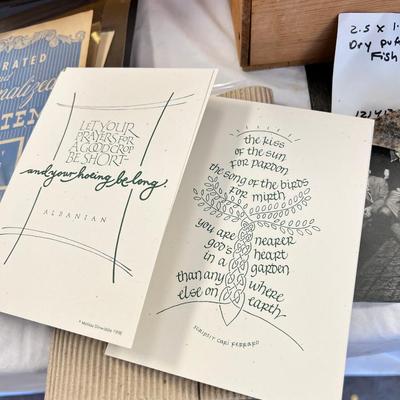 LET YOUR
PRAYERS FOR
A GOOD CROP
BE SHORT-
and your hoeing be long.
ALBANIAN
the kiss
of the sun
for pardon
the song of the birds
for mirth
you are nearer
god's heart
in a garden
than any where
else on earth.
SCRIPSIT CARI FERRARO
2.5 x 1.
Dry
Fish